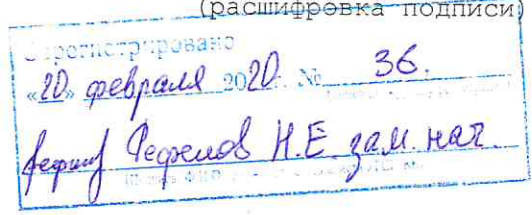 (расшифровка подписи)
Зарегистрировано
«20» февраля 2020. № 36.
Фефелов Н.Е зам. нач.